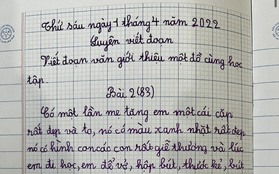 Thứ sáu ngày 1 tháng 4 năm 2022
Luyện viết đoạn
Viết đoạn văn giới thiệu một đồ dùng học
tập.
Bài 2 (83)
Có một lần mẹ tặng em một cái cặp
rất đẹp và to, nó có màu xanh nhạt rất đẹp
nó có hình con các con rất giễ thương và lúc
em đi học, em để vở, hộp bút, thước kẻ, bút